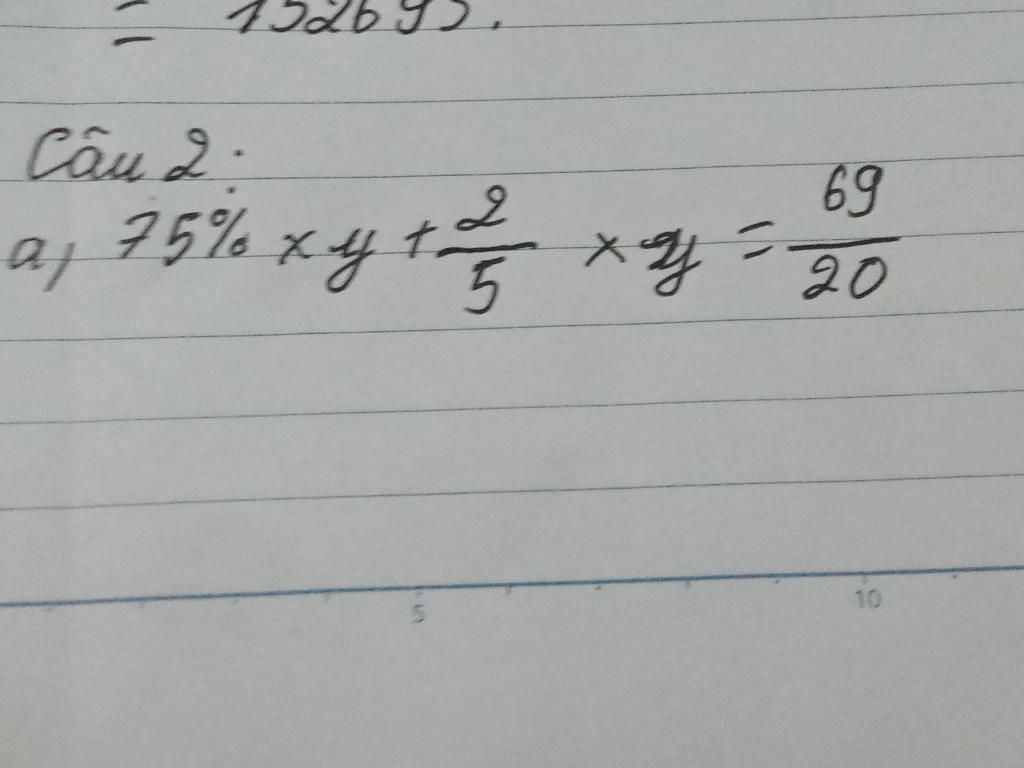 = 152693.
Câu 2:
a, 75% x y + 2/5 x y = 69/20
5 10